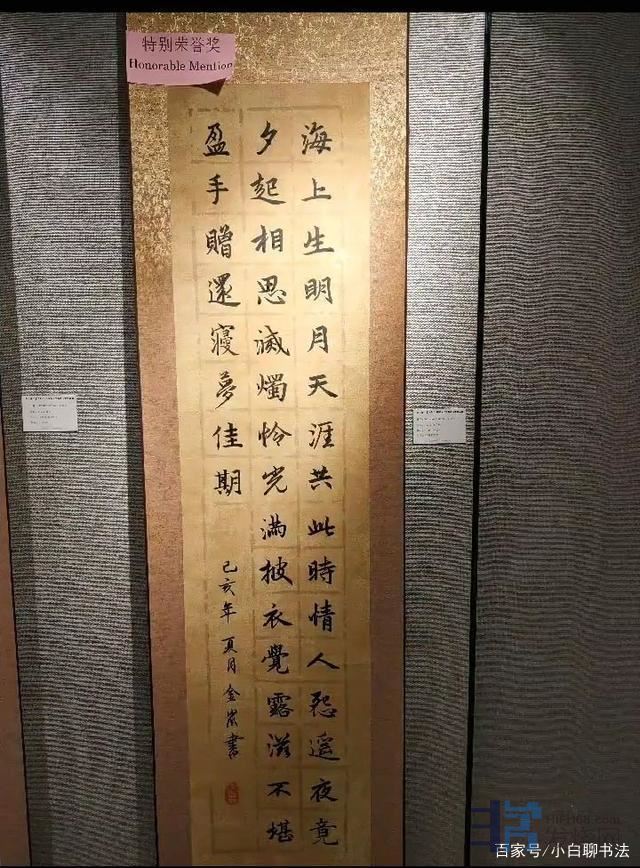 特别荣誉奖
Honorable Mention
海上生明月天涯共此時情人怨遥夜竟
夕起相思滅燭怜光滿披衣覺露滋不堪
盈手贈還寢夢佳期
己亥年夏月金嵐書
HIFI168.com
百家号/小白聊书法